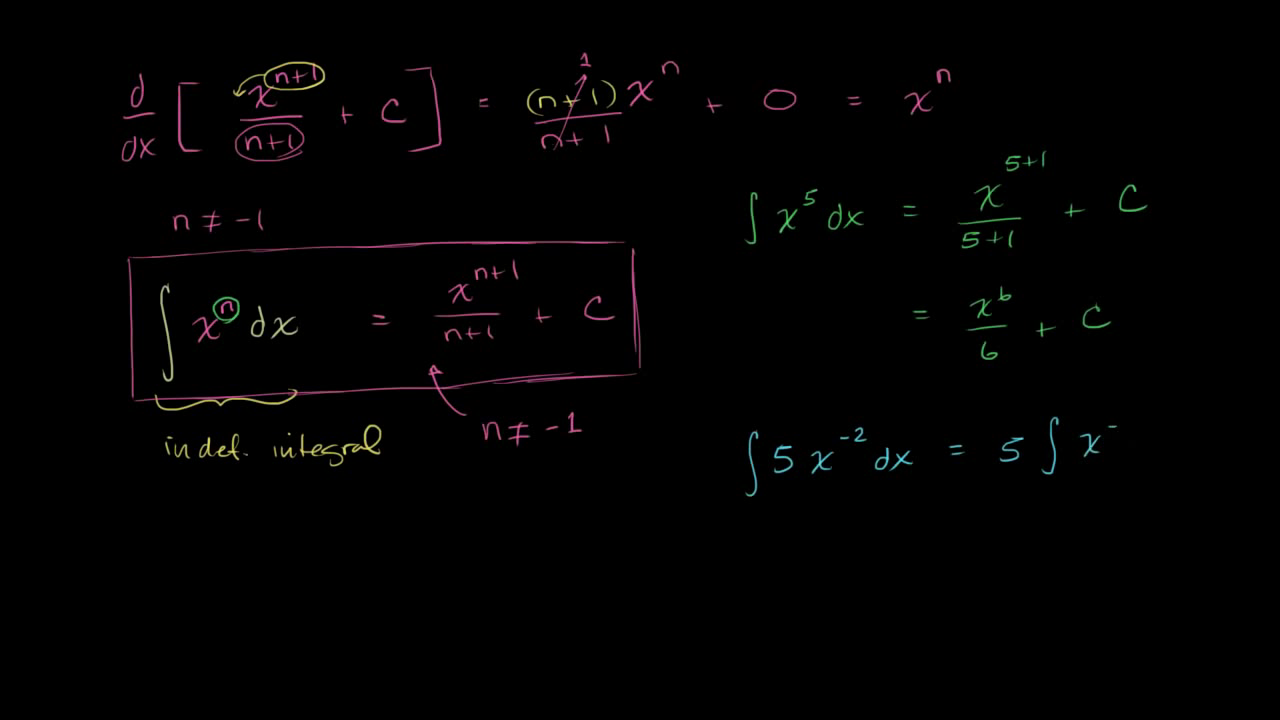 d/dx [ x^(n+1)/(n+1) + C ] = (n+1)x^n/(n+1) 1 + 0 = x^n
n ≠ -1
∫ x^n dx = x^(n+1)/(n+1) + C
n ≠ -1
indef. integral
∫ x^5 dx = x^(5+1)/(5+1) + C
= x^6/6 + C
∫ 5 x^-2 dx = 5 ∫ x^-